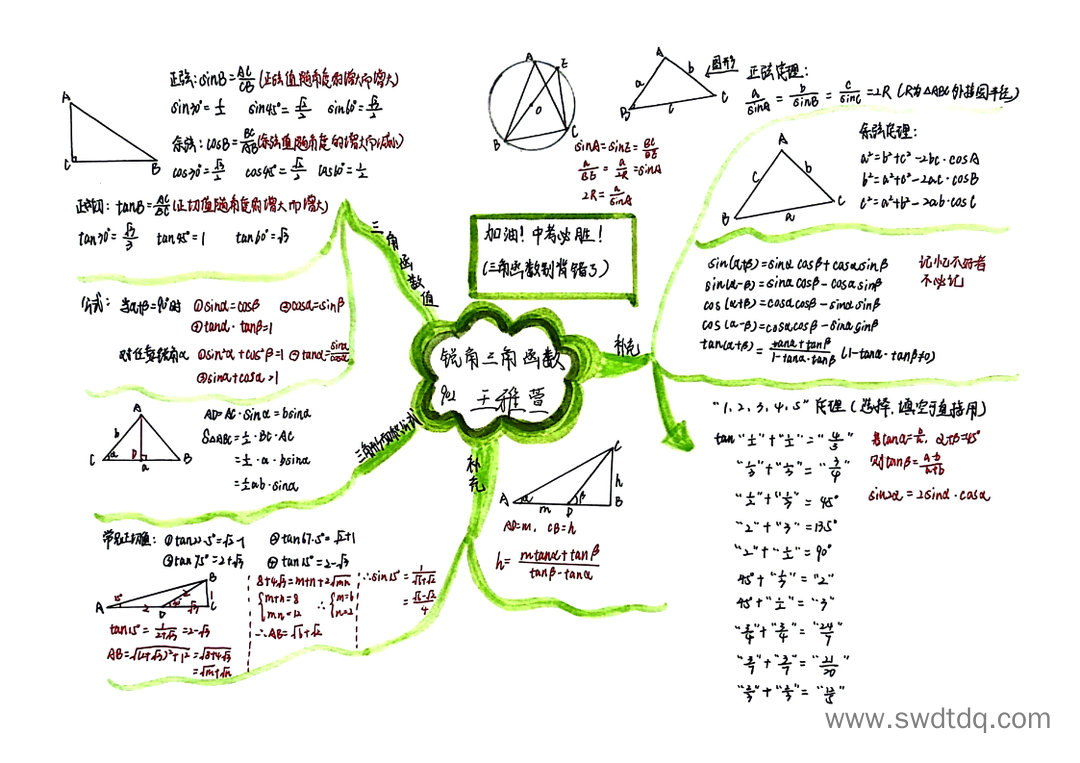 正弦：sinB=AC/CB（正弦值随角度的增大而增大）
sin30°=1/2 sin45°=√2/2 sin60°=√3/2
余弦：cosB=BC/AB（余弦值随角度的增大而减小）
cos30°=√3/2 cos45°=√2/2 cos60°=1/2
正切：tanB=AC/BC（正切值随角度的增大而增大）
tan30°=√3/3 tan45°=1 tan60°=√3
A
C
B
三角函数值
公式：当α+β=90°时 ①sinα=cosβ ②cosα=sinβ
③tanα·tanβ=1
对任意锐角α ①sin²α+cos²β=1 ②tanα=sinα/cosα
③sinα+cosα>1
A
b
C
α
D
a
B
AD=AC·sinα=bsinα
S△ABC=1/2·BC·AC
=1/2·a·bsinα
=1/2ab·sinα
常见正切值：①tan22.5°=√2-1 ②tan67.5°=√2+1
③tan75°=2+√3 ④tan15°=2-√3
A
15°
2
D
√3
C
B
1
tan15°=1/(2+√3)=2-√3
AB=√((2+√3)²+1²)=√(8+4√3)
=√m+√n
8+4√3=m+n+2√mn
{m+n=8
mn=12
∴{m=6
n=2
∴AB=√6+√2
∴sin15°=1/(√6+√2)
=(√6-√2)/4
加油！中考必胜！
（三角函数别背错了）
锐角三角函数
902 王雅萱
补充
A
α
m
D
β
B
h
C
AD=m, CB=h
h=(mtanα+tanβ)/(tanβ-tanα)
补充
A
E
O
B
C
sinA=sinE=BC/BE
a/BE=a/2R=sinA
2R=a/sinA
A
a
b
B
c
C
图形
正弦定理：
a/sinA=b/sinB=c/sinC=2R（R为△ABC外接圆半径）
A
c
b
B
a
C
余弦定理：
a²=b²+c²-2bc·cosA
b²=a²+c²-2ac·cosB
c²=a²+b²-2ab·cosC
sin(α+β)=sinαcosβ+cosαsinβ
sin(α-β)=sinαcosβ-cosαsinβ
cos(α+β)=cosαcosβ-sinαsinβ
cos(α-β)=cosαcosβ-sinαsinβ
tan(α+β)=(tanα+tanβ)/(1-tanα·tanβ) (1-tanα·tanβ≠0)
记忆不好者
不必记
“1、2、3、4、5”定理（选择、填空可直接用）
tan“1/2”+“1/2”=“4/3”
“1/3”+“1/3”=“3/4”
“1/2”+“1/3”=45°
“2”+“3”=135°
“2”+“1/2”=90°
45°+“1/3”=“2”
45°+“1/2”=“3”
“3/4”+“3/4”=“24/7”
“3/7”+“3/7”=“21/20”
“2/3”+“2/3”=“12/5”
若tanα=b/a，α+β=45°
则tanβ=(a-b)/(a+b)
sin2α=2sinα·cosα
www.swdtdq.com